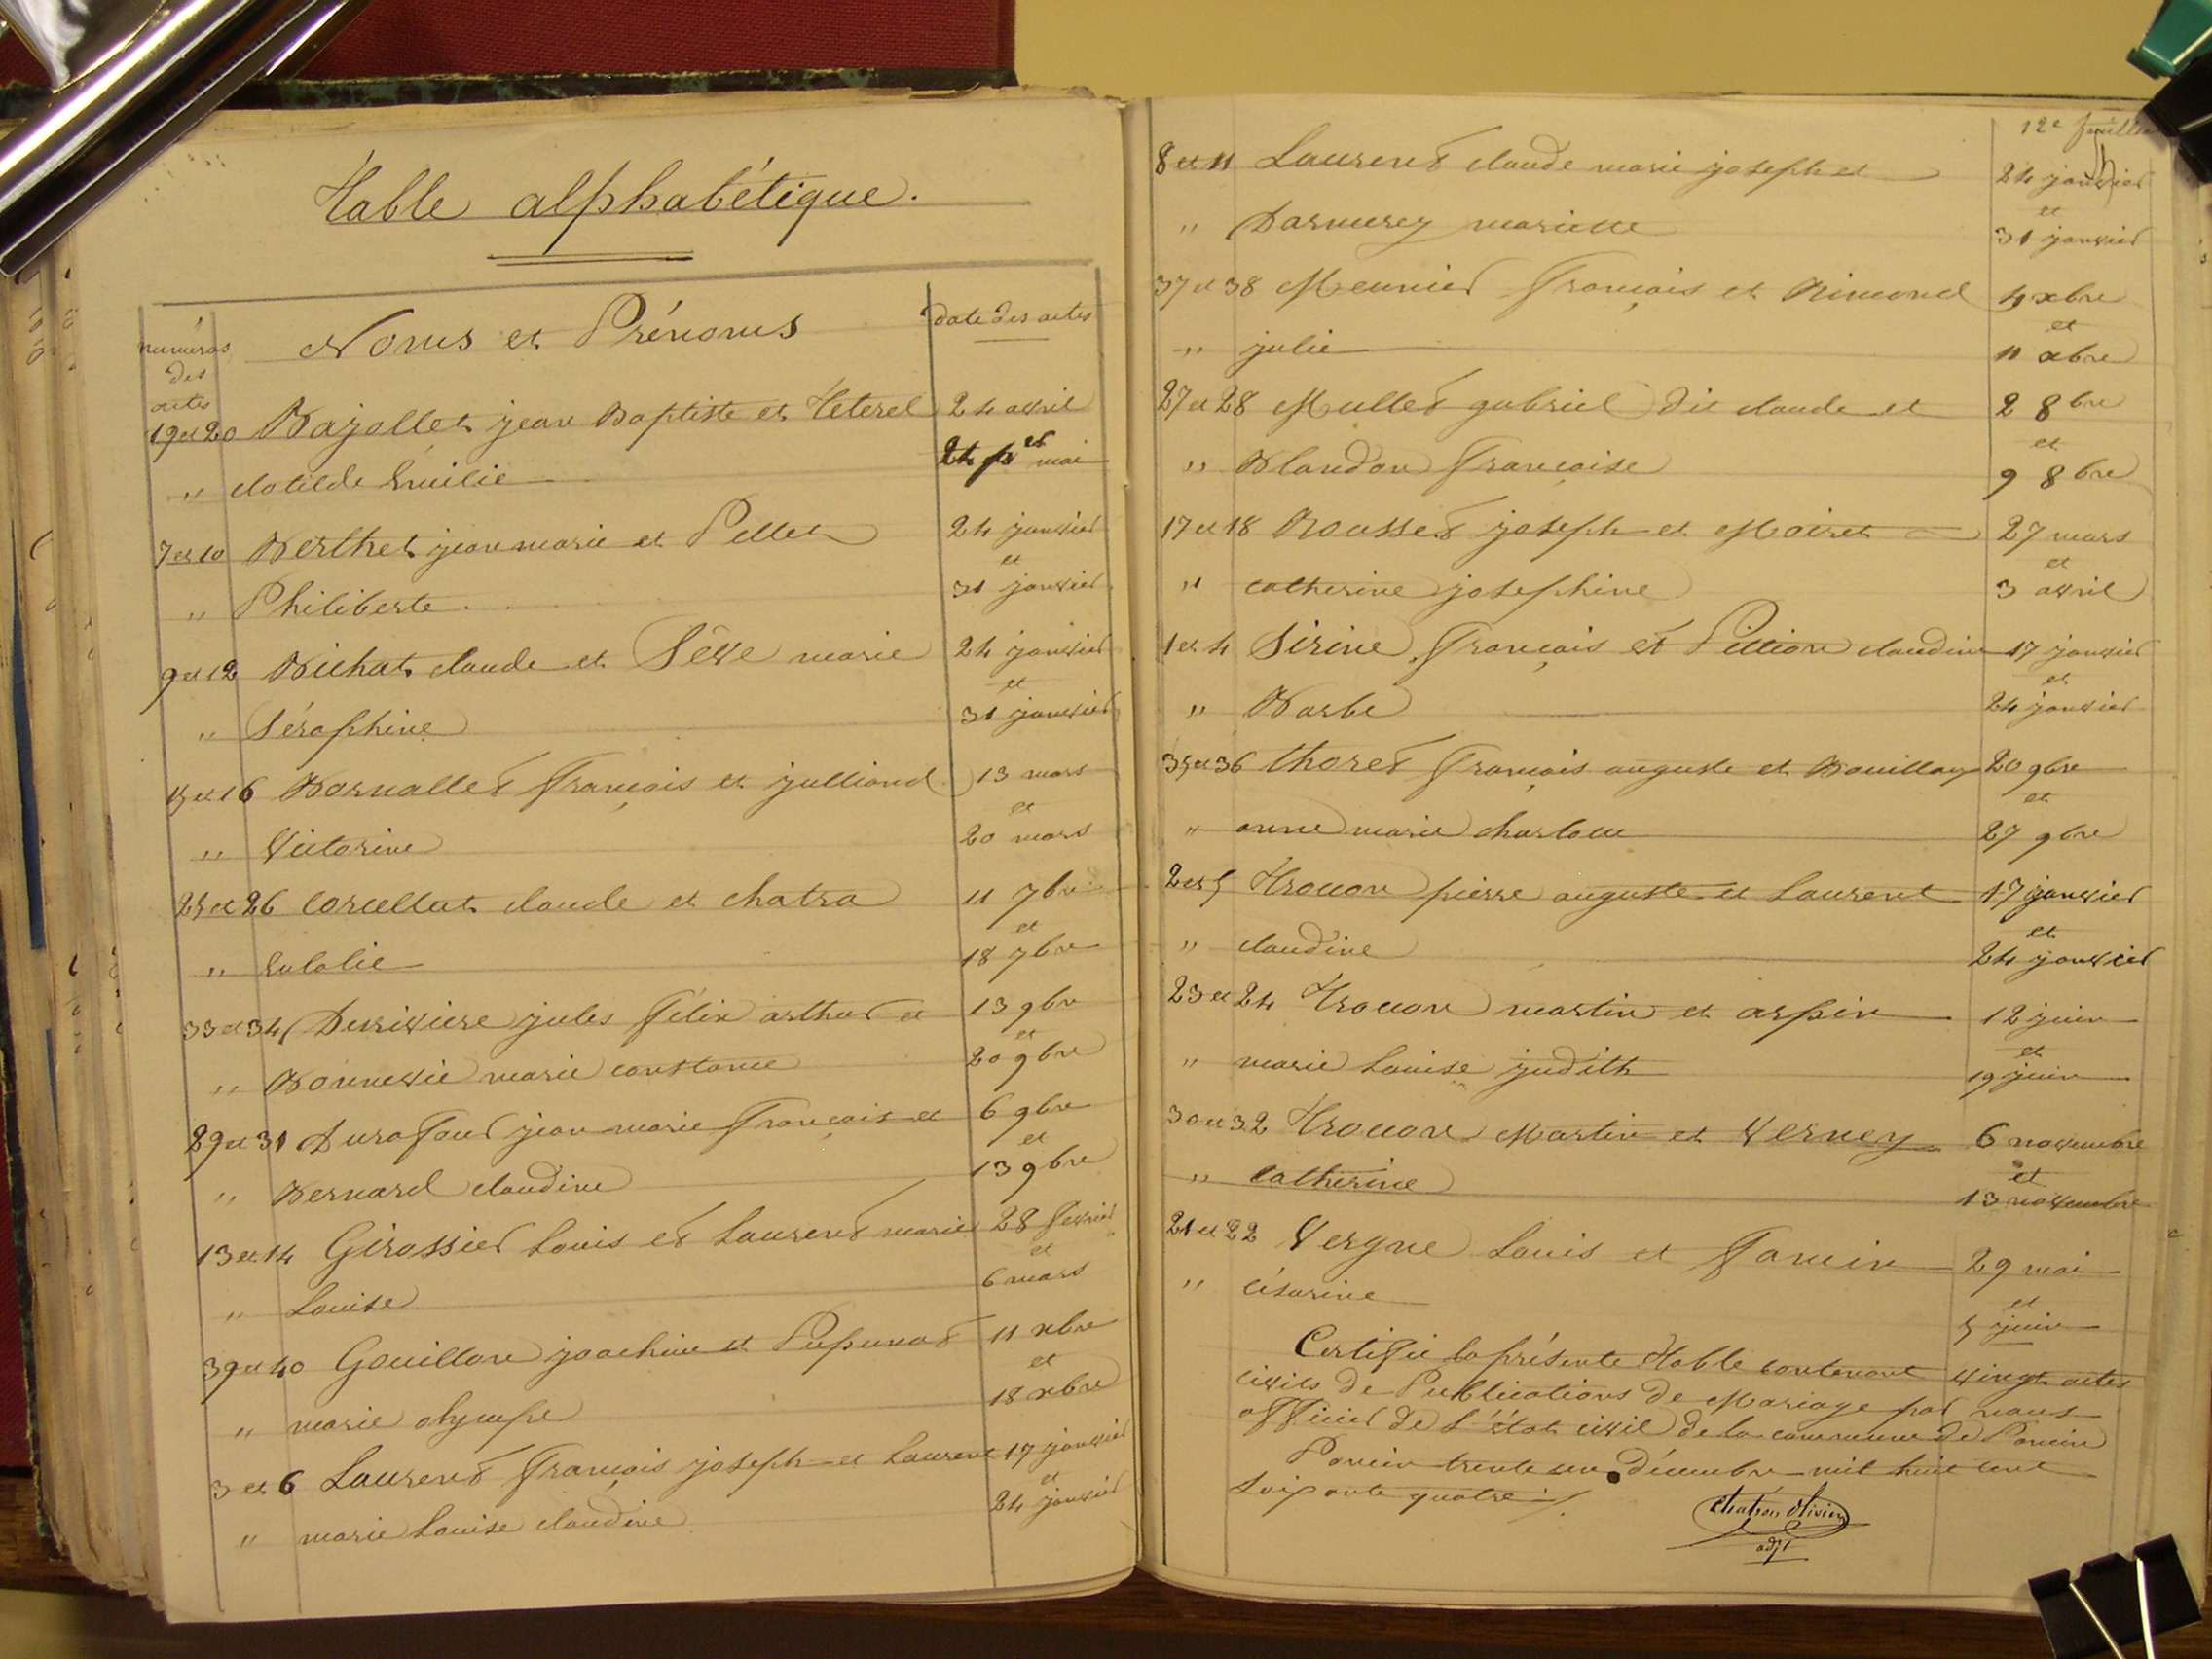 Table alphabétique.
numéros des actes
Noms et Prénoms
date des actes
19 et 20 Bajollet jean Baptiste et Téterel 24 avril
" clotilde Emilie et 1er mai
7 et 10 Berthet jean marie et Pellet 24 janvier
et
" Philiberte 31 janvier
9 et 12 Bichat claude et Sève marie 24 janvier
et
" Séraphine 31 janvier
15 et 16 Bornallet françois et julliand 13 mars
et
" Victorine 20 mars
25 et 26 Corcellut claude et chatra 11 7bre
et
" Eulalie 18 7bre
33 et 34 Derivière jules félix arthur et 13 9bre
et
" Bonnevie marie constance 20 9bre
29 et 31 Durafour jean marie françois et 6 9bre
et
" Bernard claudine 13 9bre
13 et 14 Girossier Louis et Laurent marie 28 fevrier
et
" Louise 6 mars
39 et 40 Gouillon joachim et Pupunat 11 xbre
et
" marie olympe 18 xbre
3 et 6 Laurent françois joseph et Laurent 17 janvier
et
" marie Louise claudine 24 janvier
12e feuillet
8 et 11 Laurent claude marie joseph et 24 janvier
et
" Darmerey mariette 31 janvier
37 et 38 Meunier françois et Rimond 4 xbre
et
" julie 11 xbre
27 et 28 Mullet gabriel dit claude et 2 8bre
et
" Blandon françoise 9 8bre
17 et 18 Rousset joseph et Mairet 27 mars
et
" catherine josephine 3 avril
1 et 4 Sirine françois et Pittion claudine 17 janvier
et
" Barbe 24 janvier
35 et 36 thoret françois auguste et Bouillay 20 9bre
et
" anne marie charlotte 27 9bre
2 et 5 Trouon pierre auguste et Laurent 17 janvier
et
" claudine 24 janvier
23 et 24 Trouon martin et arpin 12 juin
et
" marie Louise judith 19 juin
30 et 32 Trouon Martin et Verney 6 novembre
et
" Catherine 13 novembre
21 et 22 Vergne Louis et Famin 29 mai
et
" Césarine 5 juin
Certifié la présente Table contenant vingt actes
civils de Publications de Mariage par nous
officier de l'état civil de la commune de Poncin
Poncin trente un décembre mil huit cent
soixante quatre ./.
Chatron Olivier
adjt